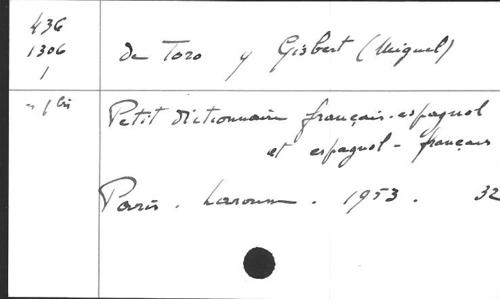 436
1306
1
de Toro y Gisbert (Miguel)
Petit dictionnaire français-espagnol
et espagnol - français
Paris. Larousse. 1953. 32